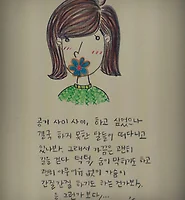 공기 사이 사이, 하고 싶었으나
결국 하지 못한 말들이 떠다니고
있나봐. 그래서 가끔은 괜히
길을 걷다 턱턱, 숨이 막히기도 하고
괜히 어울려 없이 가슴이
간질간질 하기도 하는건가봐.
그런가보다....